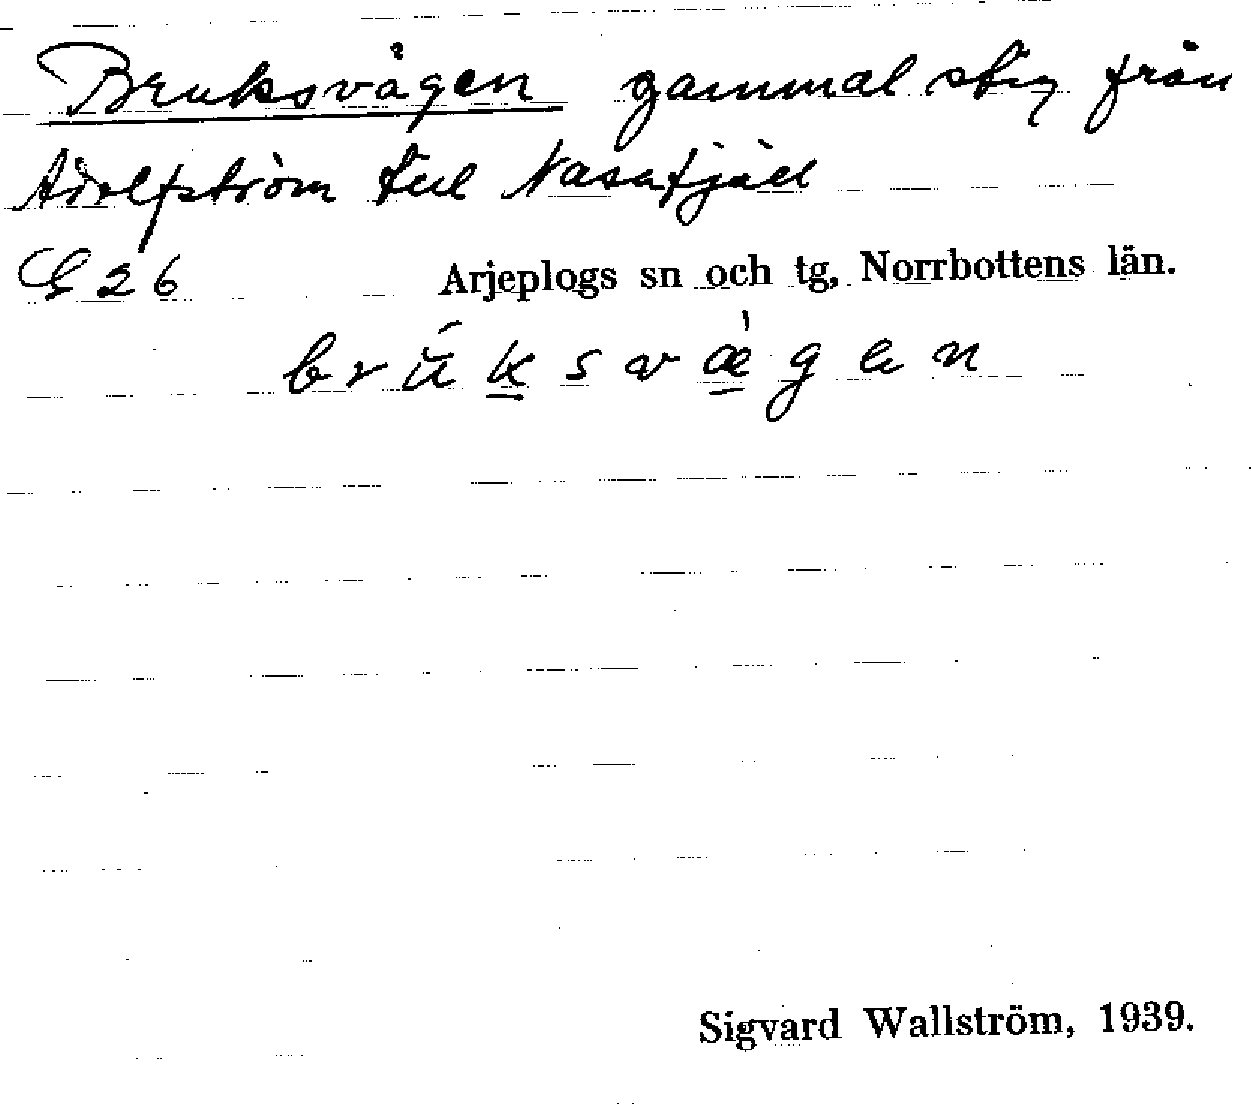 Bruksvägen gammal stig från
Adolfström till Nasafjäll
G 26 Arjeplogs sn och tg, Norrbottens län.
brúksvæ̀gen
Sigvard Wallström, 1939.